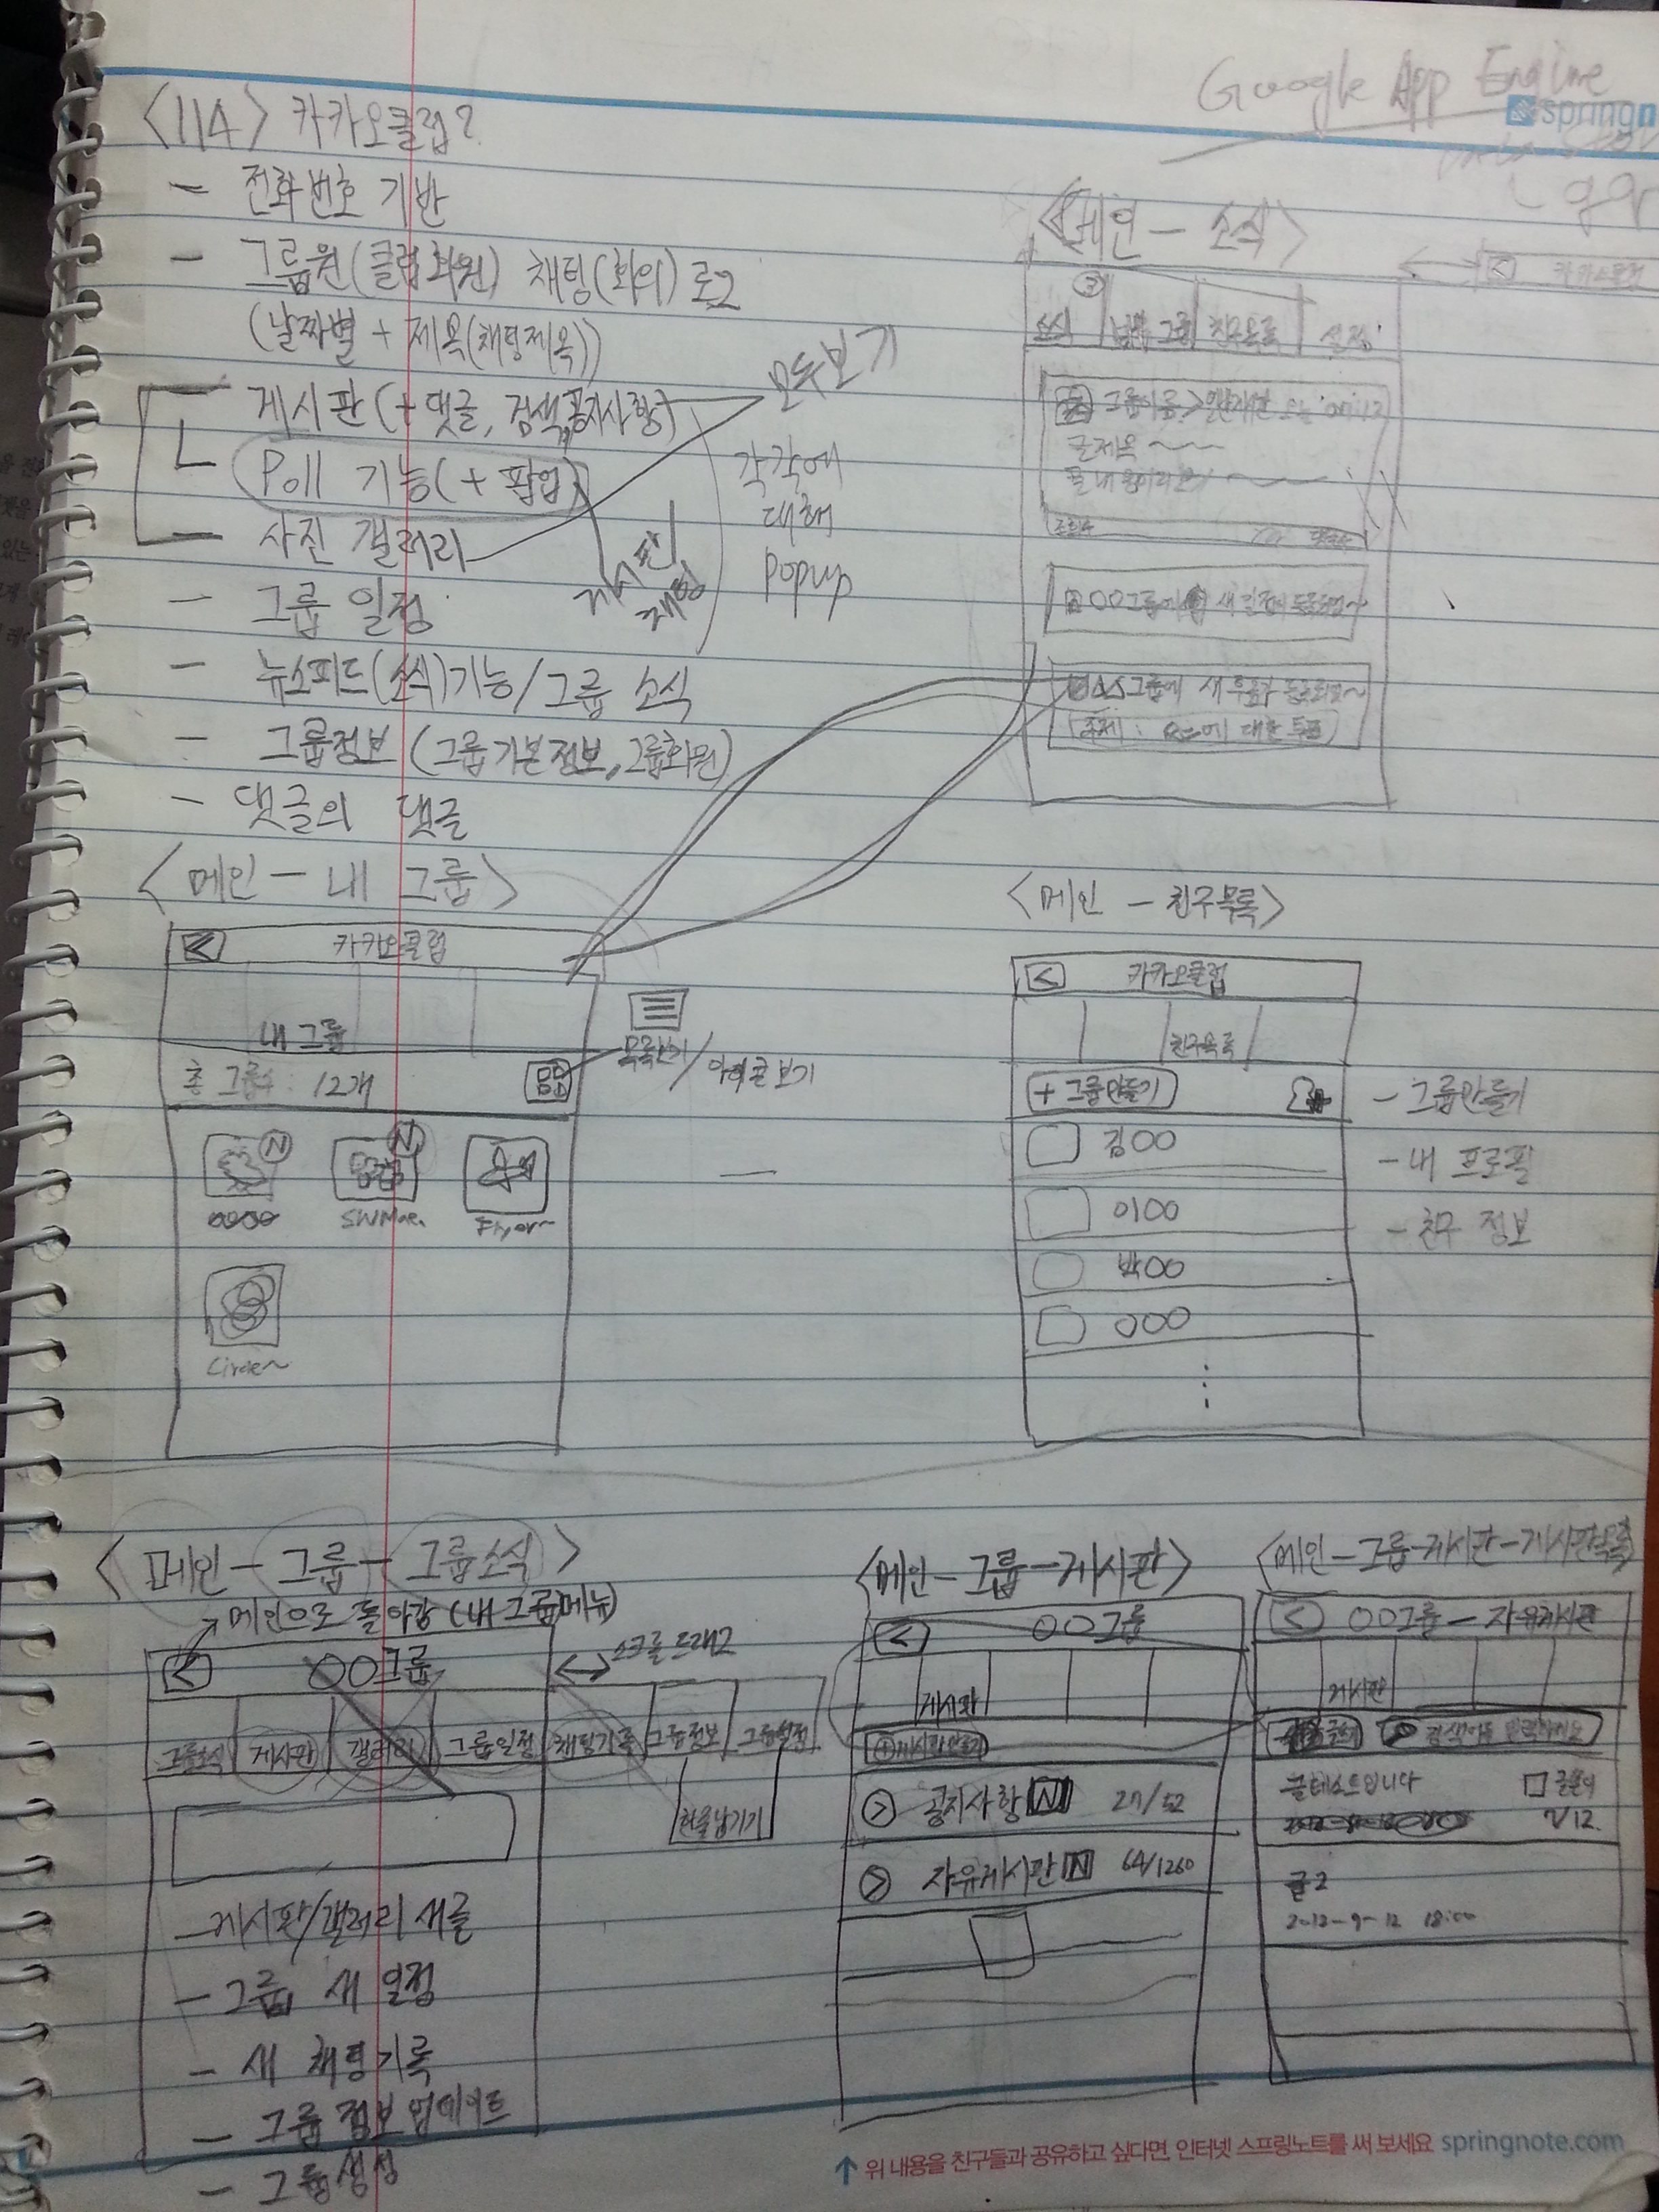 Google App Engine
springn
<114> 카카오클럽?
- 전화번호 기반
- 그룹원(클럽회원) 채팅(회의) 로그
(날짜별 + 제목(채팅제목))
- 게시판(+댓글, 검색, 공지사항)
모두보기
Poll 기능(+ 팝업)
각각에
대해
popup
게시판
채팅
- 사진 갤러리
- 그룹 일정
- 뉴스피드(소식)기능/그룹 소식
- 그룹정보 (그룹기본정보, 그룹회원)
- 댓글의 댓글
<메인 - 소식>
소식
그룹
친구목록
설정
그룹이름>
글제목 ~~~
조회수
OO그룹에 새 일정이
그룹에 새 투표가
주제 :
에 대한 투표
<메인 - 내 그룹>
< 카카오클럽
내 그룹
총 그룹수 : 12개
목록보기/아이콘보기
N
N
SWMae.
Flyer~
Circle~
<메인 - 친구목록>
< 카카오클럽
친구목록
+ 그룹만들기
김OO
이OO
박OO
OOO
- 그룹만들기
- 내 프로필
- 친구 정보
<메인 - 그룹 - 그룹소식>
메인으로 돌아감 (내 그룹메뉴)
< OO그룹
스크롤 드래그
그룹소식 게시판 갤러리 그룹일정 채팅기록 그룹정보 그룹설정
한줄남기기
- 게시판/갤러리 새글
- 그룹 새 일정
- 새 채팅기록
- 그룹 정보 업데이트
- 그룹생성
<메인-그룹-게시판>
< OO그룹
게시판
+ 게시판만들기
> 공지사항 N 27/52
> 자유게시판 N 64/1260
<메인-그룹-게시판-게시판목록>
< OO그룹 - 자유게시판
게시판
검색어를 입력하세요
글테스트입니다
7/12.
글2
2012-9-12 18:00
↑ 위 내용을 친구들과 공유하고 싶다면, 인터넷 스프링노트를 써 보세요 springnote.com